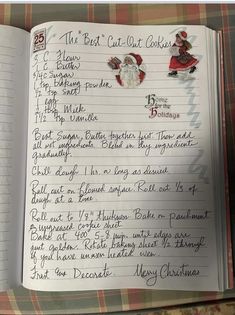 25
The "Best" Cut-Out Cookies
3 C Flour
1 C Butter
3/4 C Sugar
1 tsp Baking powder
1/2 tsp Salt
1 egg
1 tbsp Milk
1 1/2 tsp Vanilla
Home
for the
Holidays
Beat Sugar, Butter together first Then add
all wet ingredients. Blend in dry ingredients
gradually.
Chill dough 1 hr. or long as desired
Roll out on floured surface. Roll out 1/3 of
dough at a time.
Roll out to 1/8" thickness Bake on parchment
or ungreased cookie sheet
Bake at 400° 5-8 min. until edges are
just golden. Rotate baking sheet 1/2 through
if you have uneven heated oven.
Frost and Decorate. Merry Christmas